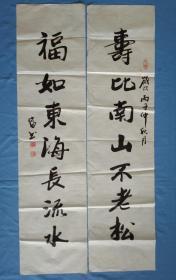 壽比南山不老松
歲次丙子仲秋月
福如東海長流水